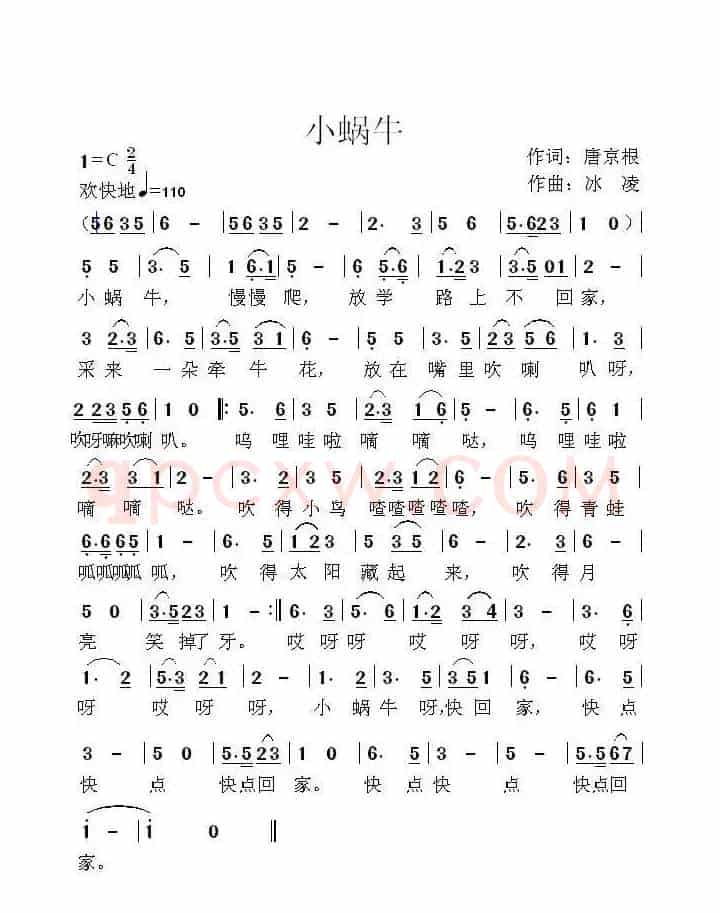 小蜗牛
1=C 2/4 作词：唐京根
欢快地 ♩=110 作曲：冰 凌
（5635 | 6 - | 5635 | 2 - | 2· 3 | 5 6 | 5·623 | 1 0）|
5 5 | 3· 5 | 1 6·1 | 5 - | 6 5·6 | 1·23 | 3·5 01 | 1 0 |
小蜗 牛， 慢慢 爬， 放学 路上不 回家，
3 2·3 | 6· 5 | 3·5 3 1 | 6 - | 5· 5 | 23 35 | 56 5 |
采来 一朵牵牛 花， 放在 嘴里吹喇 叭呀，
2 2356 | 1 0 ‖: 5· 6 | 3 5 | 2·3 1 6 | 5 - | 5· 6 | 3 5 |
吹呀嘛吹喇 叭。 呜 哩哇啦嘀 嘀 哒， 呜哩哇啦
2·3 3 1 | 2 - | 3· 2 | 3 5 | 2·3 1 6 | 5 - | 5· 6 | 3 5 |
嘀 嘀 哒。 吹得小鸟 喳喳喳喳喳， 吹得青蛙
6·665 | 1 - | 6· 5 | 123 | 5 3 5 | 6 - | 2· 3 | 6 |
呱呱呱呱 呱， 吹 得太阳藏起 来， 吹得月
5 0 | 3·523 | 1 - :‖ 6· 3 | 5· 6 | 1·2 3 4 | 3 - | 3· 6 |
亮 笑掉了牙。 哎呀呀 哎 呀呀， 哎呀
1· 2 | 5·3 2 1 | 2 - | 3· 2 | 3 5 | 3 5 1 | 6 - | 5 6 |
呀 哎呀呀， 小蜗牛呀，快回 家， 快点
3 - | 5 0 | 5·523 | 1 0 | 6· 5 | 3 - | 2 0 | 5·567 |
快 点 快点回 家。 快点快 点 快点回
1 - | 1 0 ‖
家。
qpcxw.COM